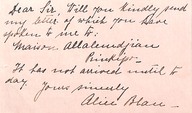 Dear Sir, Will you kindly send
my letter of which you have
spoken to me to:
Maison Allalemdjian
Prinkipo
It has not arrived until to
day.
Yours sincerely
Alice Blau